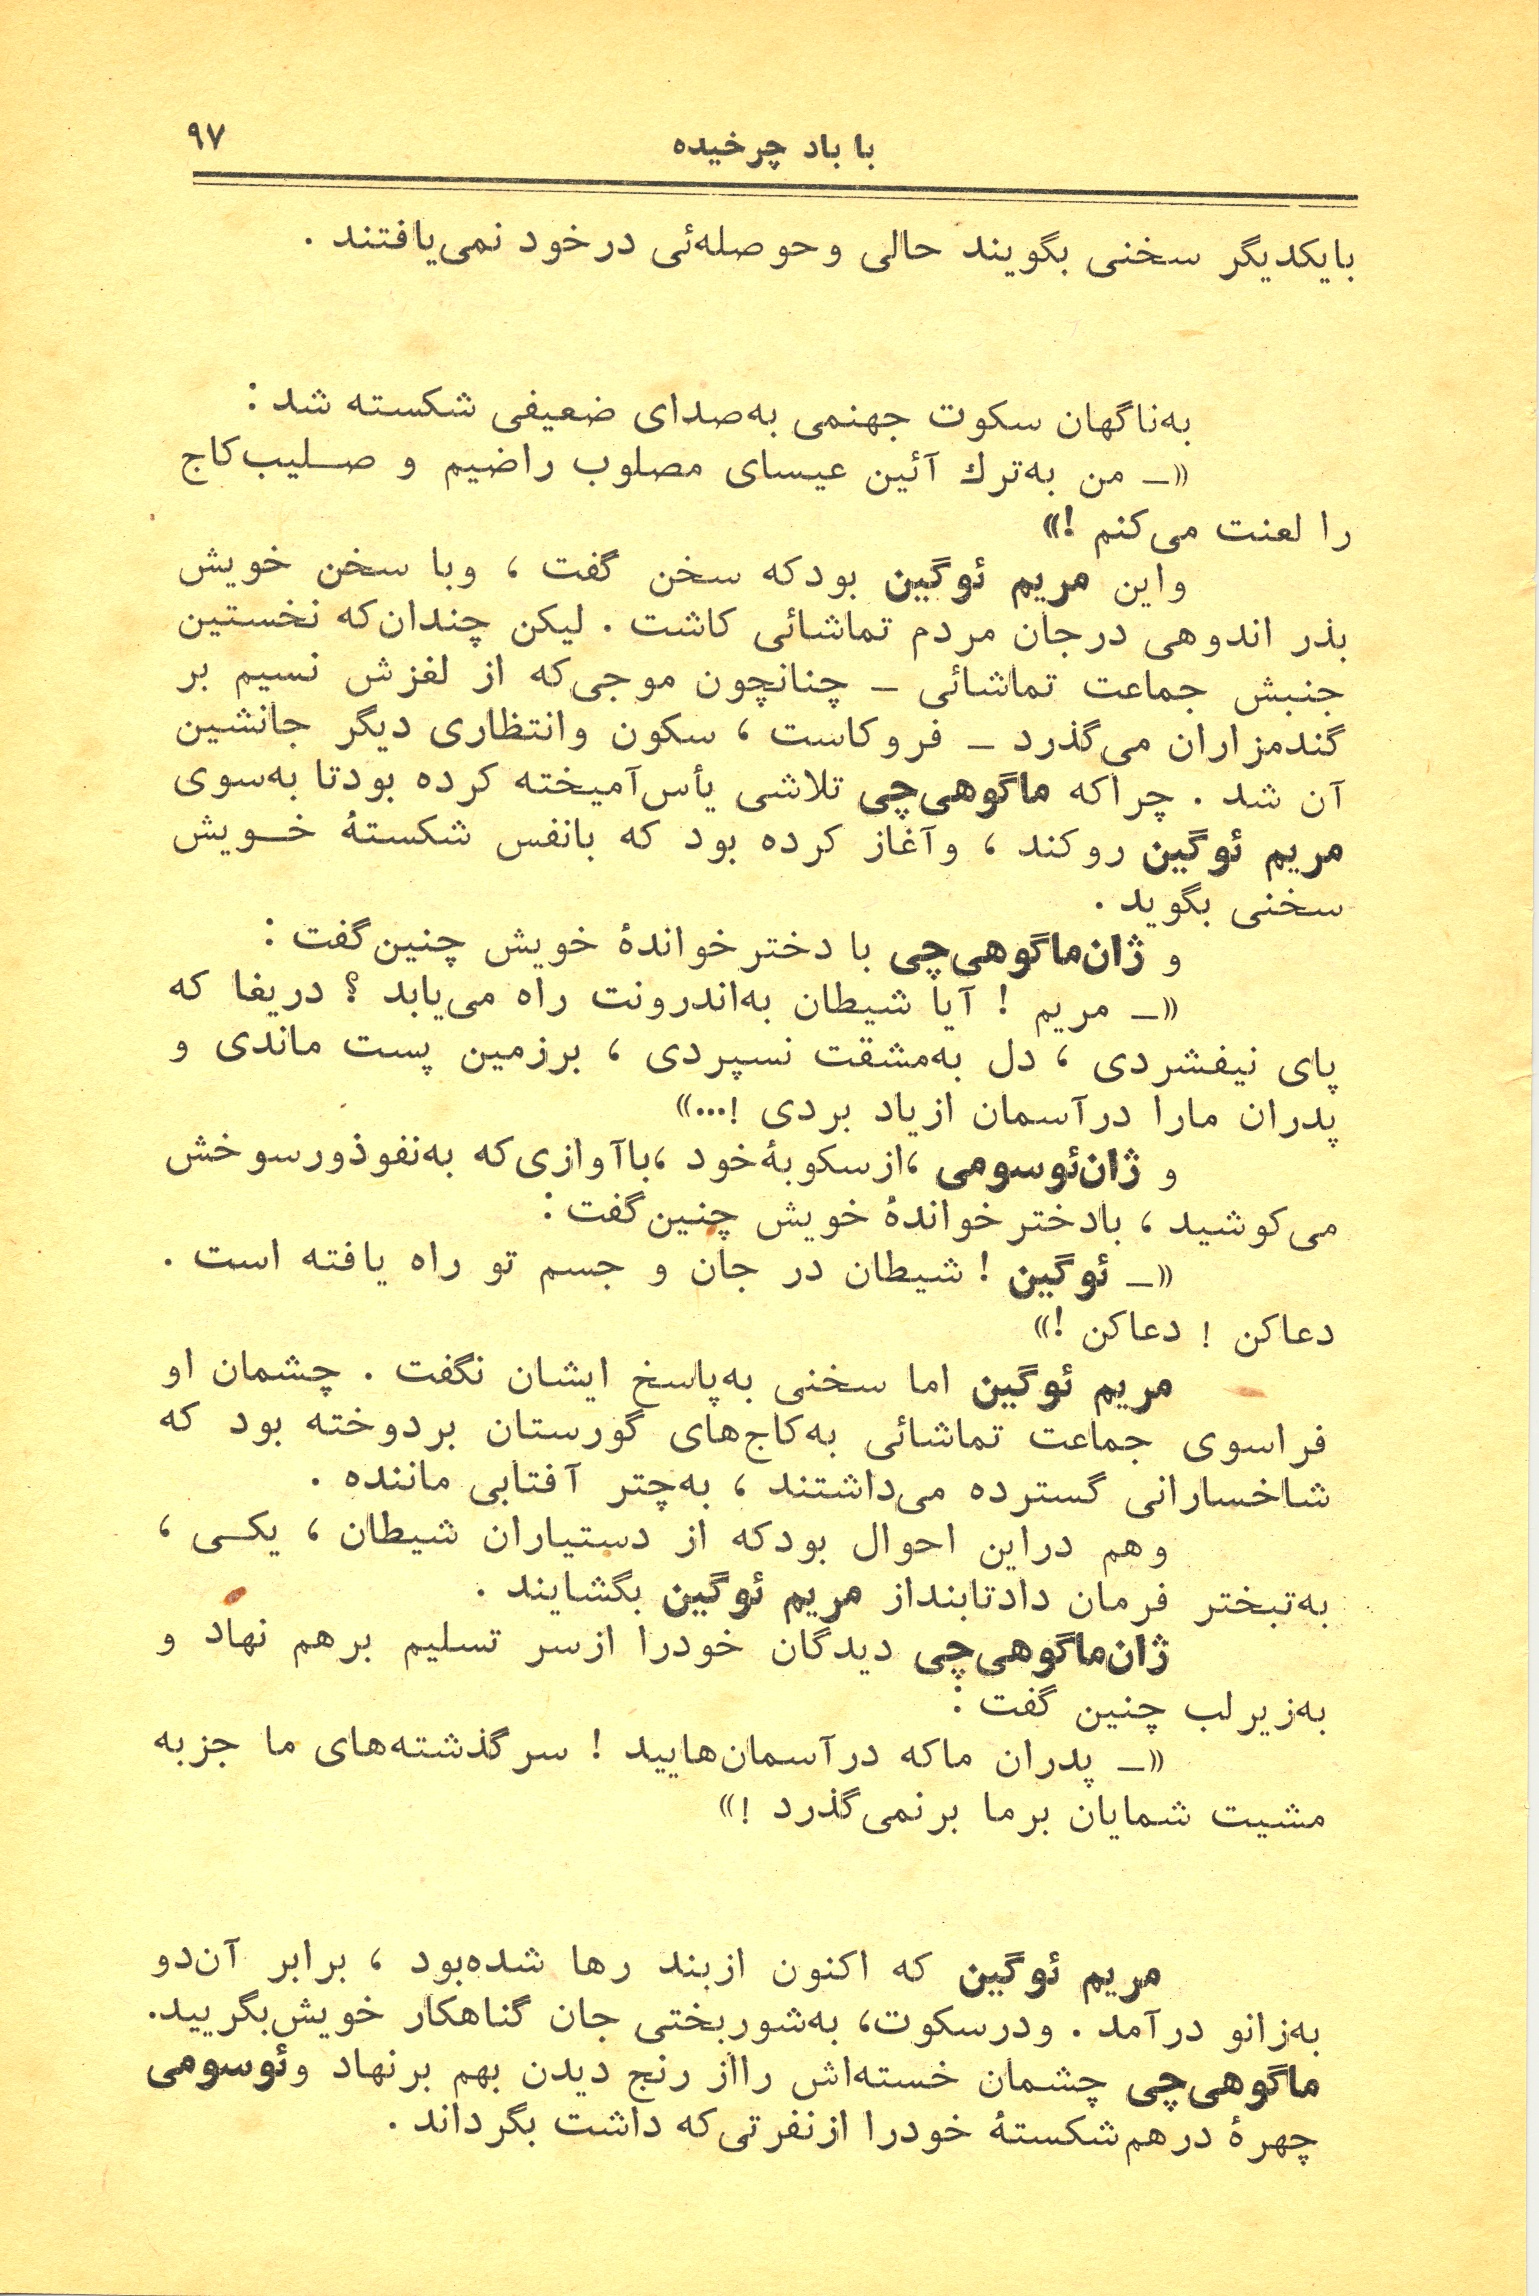 با باد چرخیده
۹۷
بایکدیگر سخنی بگویند حالی وحوصله‌ئی درخود نمی‌یافتند .
به‌ناگهان سکوت جهنمی به‌صدای ضعیفی شکسته شد :
«ــ من به‌ترك آئین عیسای مصلوب راضیم و صلیب‌کاج
را لعنت می‌کنم !»
واین مریم ئوگین بودکه سخن گفت ، وبا سخن خویش
بذر اندوهی درجان مردم تماشائی کاشت . لیکن چندان‌که نخستین
جنبش جماعت تماشائی ــ چنانچون موجی‌که از لغزش نسیم بر
گندمزاران می‌گذرد ــ فروکاست ، سکون وانتظاری دیگر جانشین
آن شد . چراکه ماگوهی‌چی تلاشی یأس‌آمیخته کرده بودتا به‌سوی
مریم ئوگین روکند ، وآغاز کرده بود که بانفس شکستهٔ خویش
سخنی بگوید .
و ژان‌ماگوهی‌چی با دخترخواندهٔ خویش چنین‌گفت :
«ــ مریم ! آیا شیطان به‌اندرونت راه می‌یابد ؟ دریغا که
پای نیفشردی ، دل به‌مشقت نسپردی ، برزمین پست ماندی و
پدران مارا درآسمان ازیاد بردی !...»
و ژان‌ئوسومی ،ازسکوبهٔ‌خود ،باآوازی‌که به‌نفوذورسوخش
می‌کوشید ، بادخترخواندهٔ خویش چنین‌گفت :
«ــ ئوگین ! شیطان در جان و جسم تو راه یافته است .
دعاکن ! دعاکن !»
مریم ئوگین اما سخنی به‌پاسخ ایشان نگفت . چشمان او
فراسوی جماعت تماشائی به‌کاج‌های گورستان بردوخته بود که
شاخسارانی گسترده می‌داشتند ، به‌چتر آفتابی ماننده .
وهم دراین احوال بودکه از دستیاران شیطان ، یکی ،
به‌تبختر فرمان دادتابنداز مریم ئوگین بگشایند .
ژان‌ماگوهی‌چی دیدگان خودرا ازسر تسلیم برهم نهاد و
به‌زیرلب چنین گفت :
«ــ پدران ماکه درآسمان‌هایید ! سرگذشته‌های ما جزبه
مشیت شمایان برما برنمی‌گذرد !»
مریم ئوگین که اکنون ازبند رها شده‌بود ، برابر آن‌دو
به‌زانو درآمد . ودرسکوت، به‌شوربختی جان گناهکار خویش‌بگریید.
ماگوهی‌چی چشمان خسته‌اش رااز رنج دیدن بهم برنهاد وئوسومی
چهرهٔ درهم‌شکستهٔ خودرا ازنفرتی‌که داشت بگرداند .